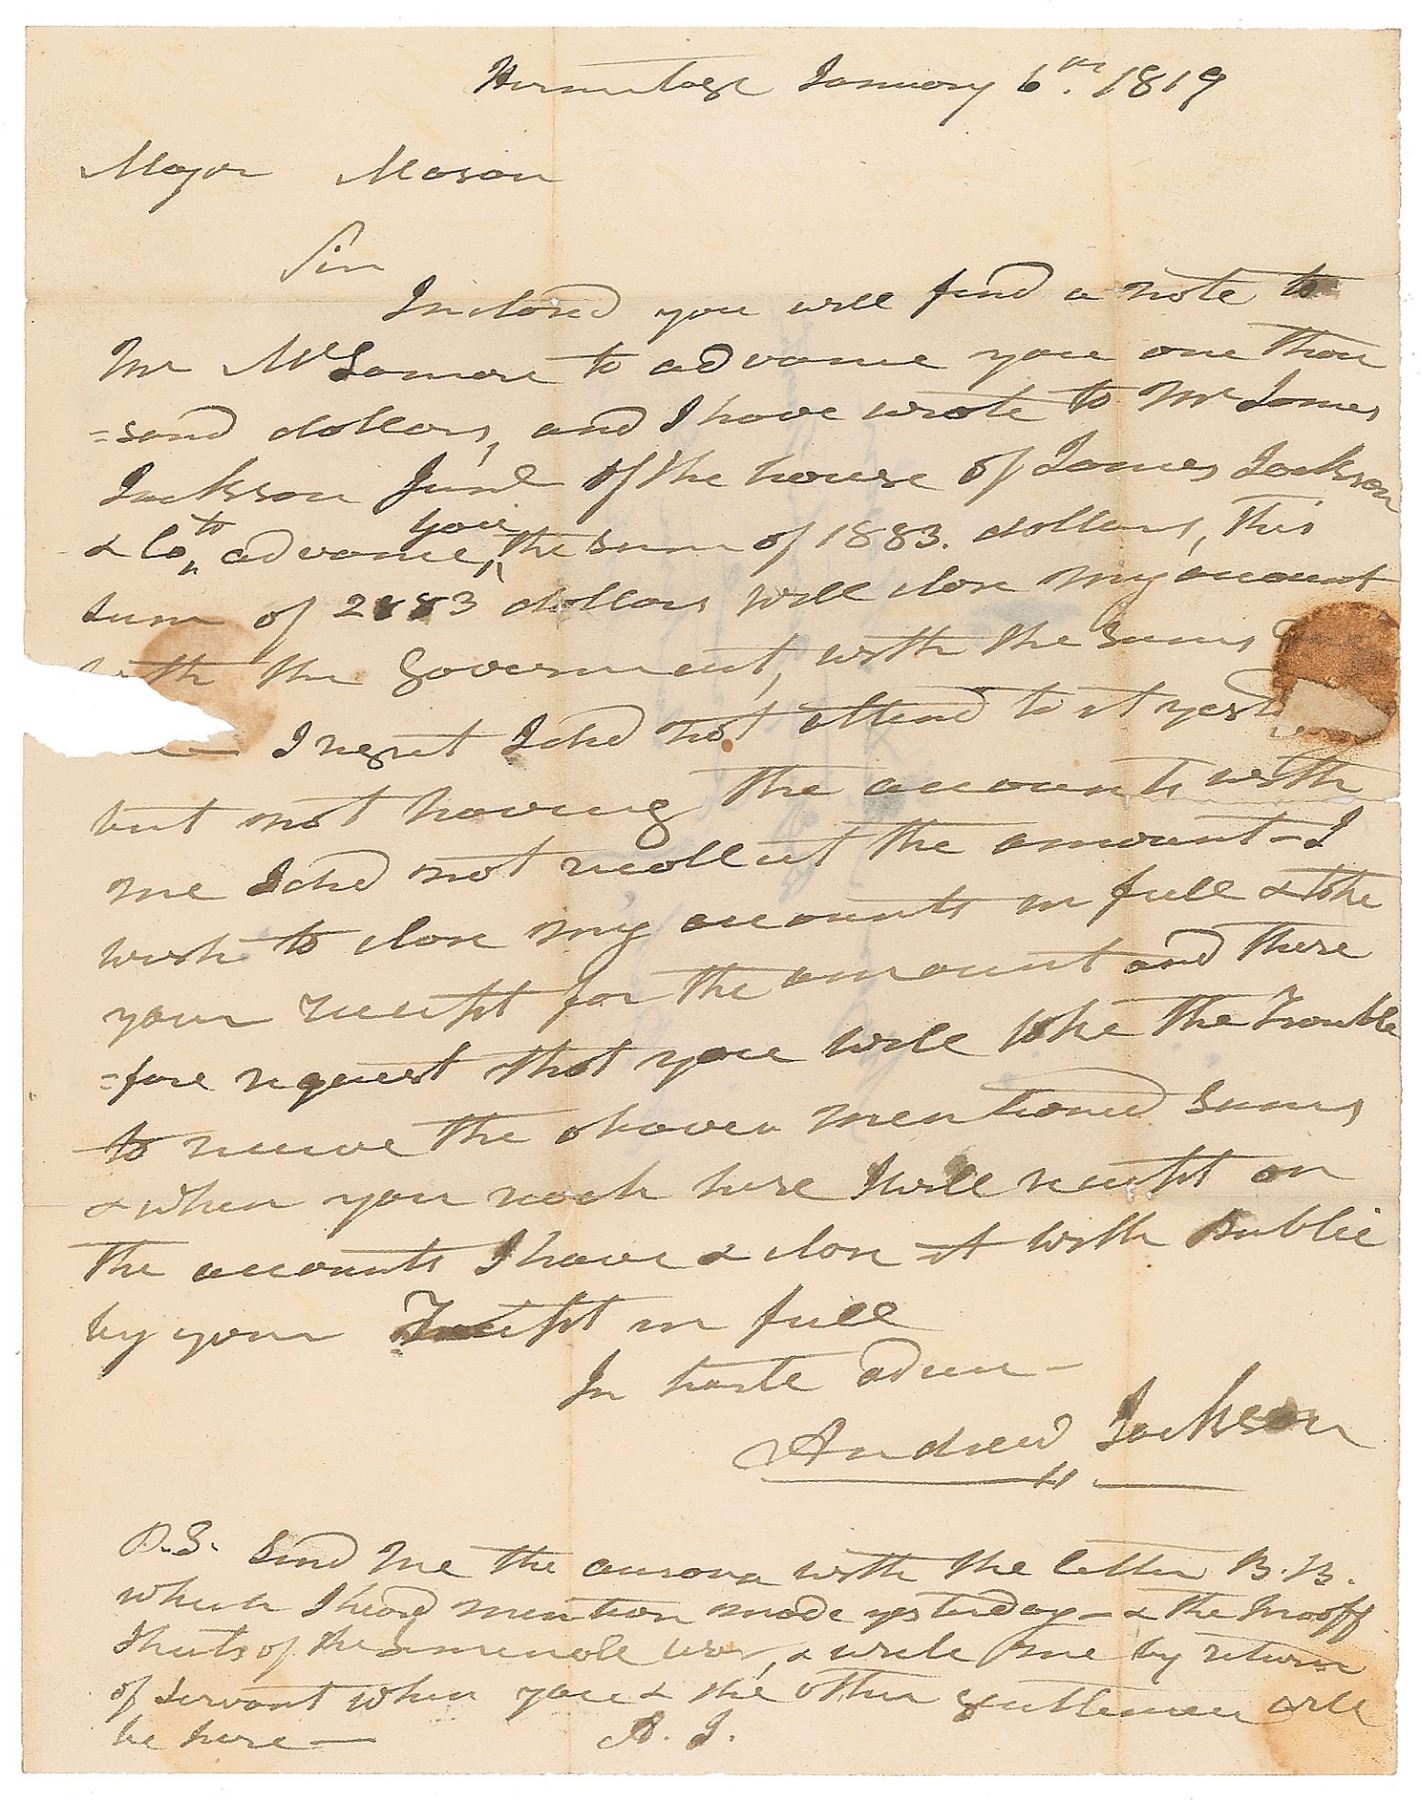 Hermitage January 6th. 1819
Major Mason
Sir
Inclosed you will find a note to
Mr McLemore to advance you one thou
=sand dollars, and I have wrote to Mr James
Jackson Junr of the house of James Jackson
& Co, to advance, you the sum of 1883. dollars, this
sum of 2883 dollars will close my account
with the Goverment, with the sums
I regret I did not attend to it yesterday
but not having the accounts with
me I did not recollect the amount—I
wish to close my accounts in full & take
your receipt for the amount and there
=fore request that you will take the Trouble
to receive the above mentioned sums
& when you reach here I will receipt on
the accounts I have & close it with Public
by your receipt in full
In haste adieu—
Andrew Jackson
P.S. Send me the aurora with the letter B.B.
which I heard mention made yesterday—& the proof
Sheets of the semenole war, & write me by return
of servant when you & the other gentlemen will
be here—  A. J.